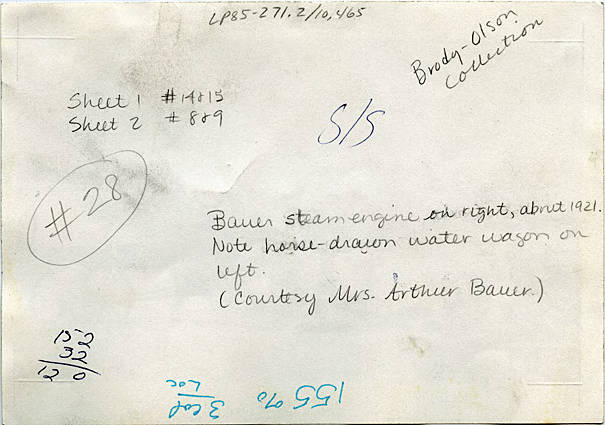 LP85-271.2/10,465
Brody-Olson
Collection
Sheet 1 #14&15
Sheet 2 #8&9
S/S
#28
Bauer steam engine on right, about 1921.
Note horse-drawn water wagon on
left.
(Courtesy Mrs. Arthur Bauer.)
15 2
32
12 0
155%
3 col
Loc